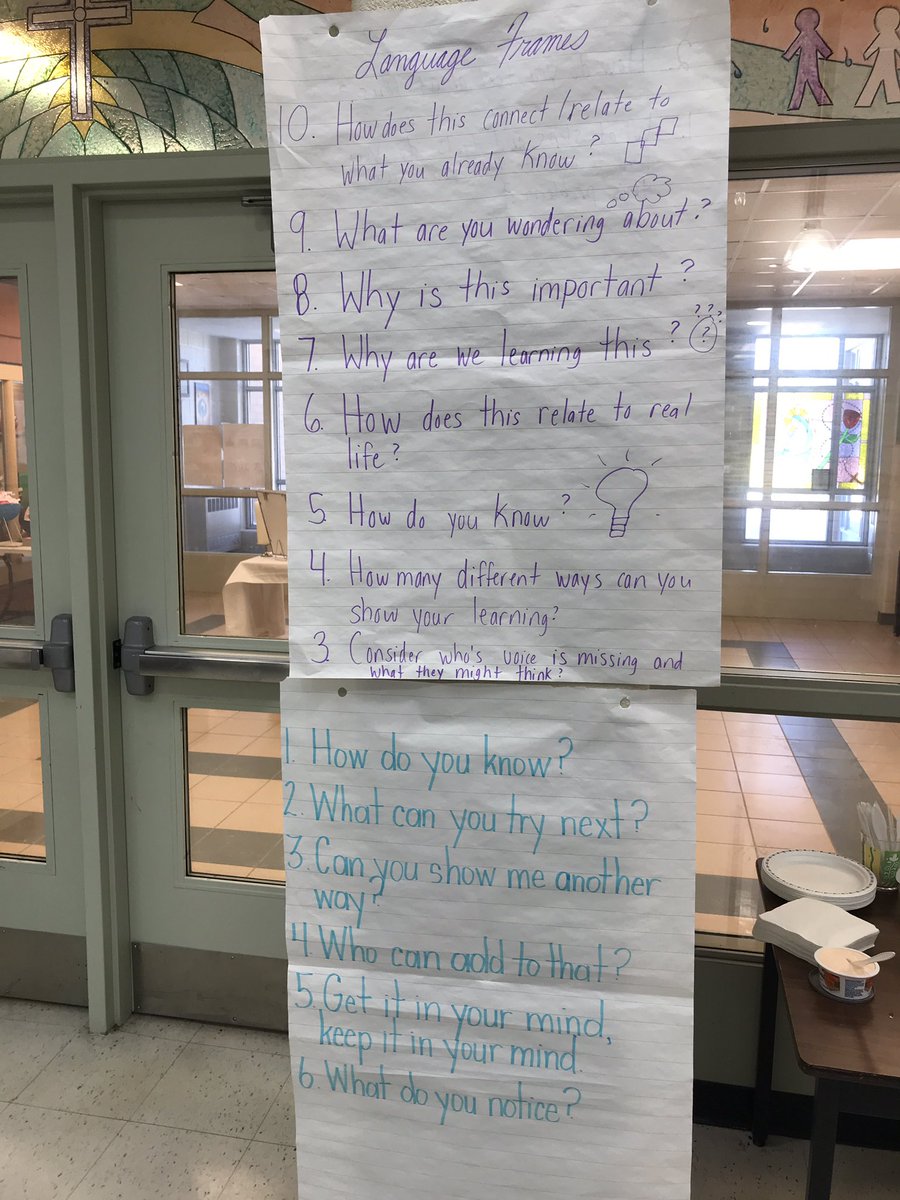 Language Frames
10. How does this connect/relate to
what you already know?
9. What are you wondering about?
8. Why is this important?
7. Why are we learning this? ? ? ? ?
6. How does this relate to real
life?
5. How do you know?
4. How many different ways can you
show your learning?
3. Consider who's voice is missing and
what they might think?
1. How do you know?
2. What can you try next?
3. Can you show me another
way?
4. Who can add to that?
5. Get it in your mind,
keep it in your mind.
6. What do you notice?